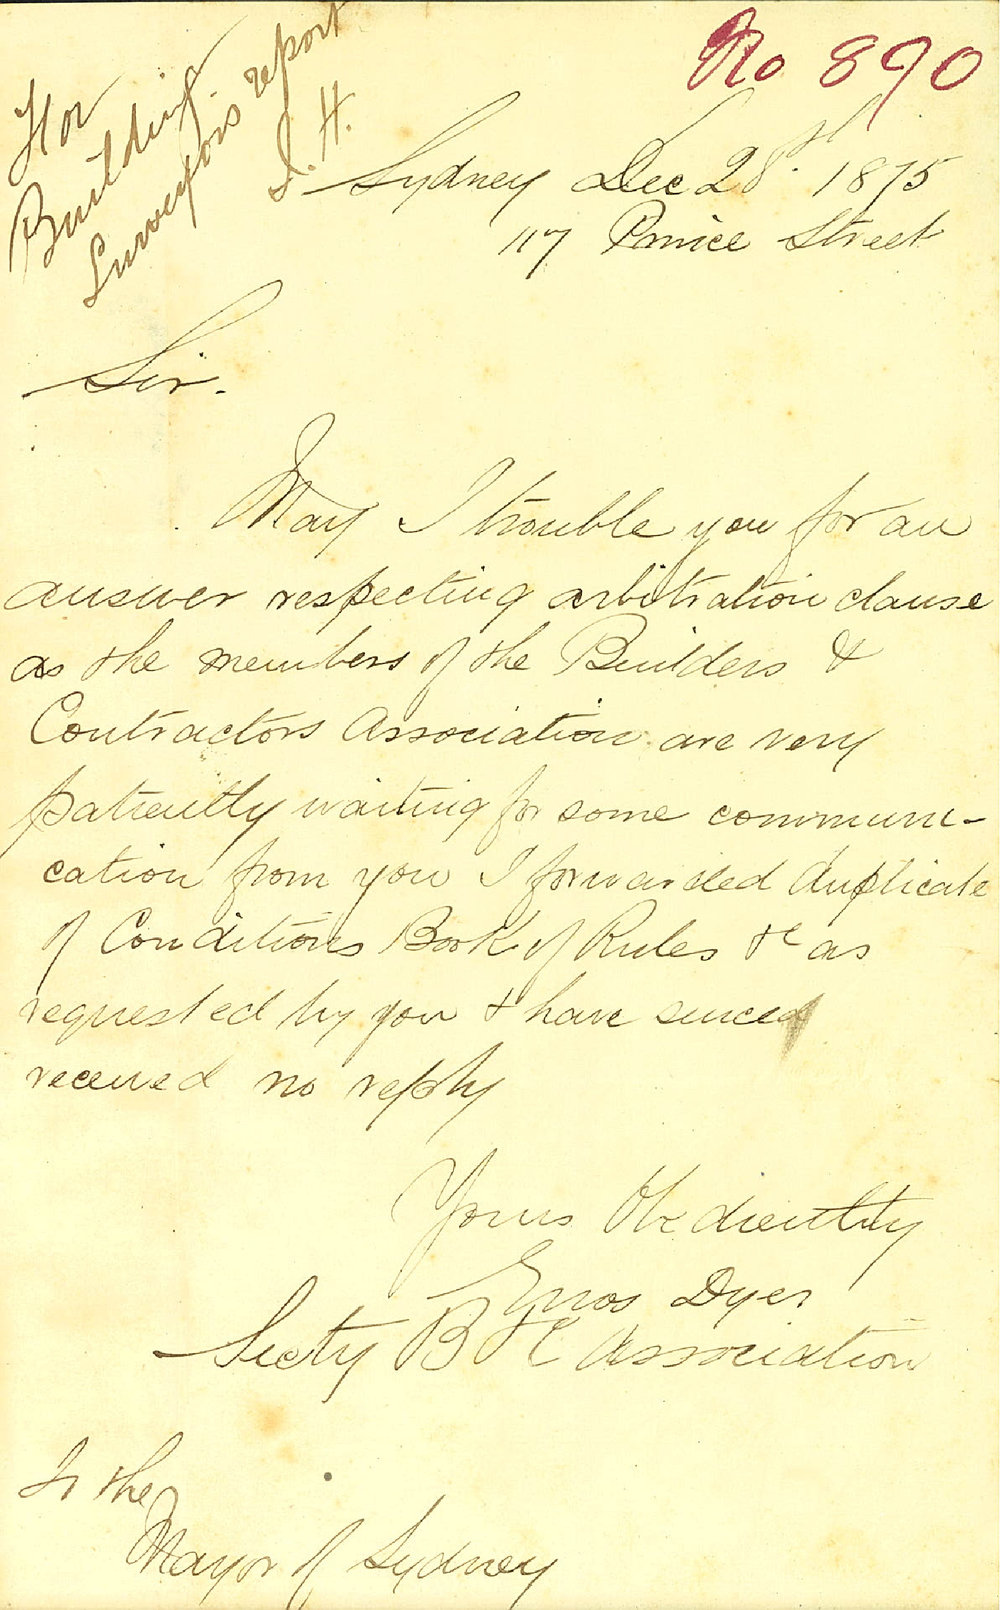 No 890
For
Building
Surveyors report
J. H.
Sydney Dec 28th. 1875
117 Prince Street
Sir.
May I trouble you for an
answer respecting arbitration clause
as the members of the Builders &
Contractors Association are very
patiently waiting for some communi-
cation from you I forwarded duplicate
of Conditions Book of Rules &c as
requested by you & have since
received no reply
Yours Obediently
Enos Dyer
Secty B & C Association
To the
Mayor of Sydney